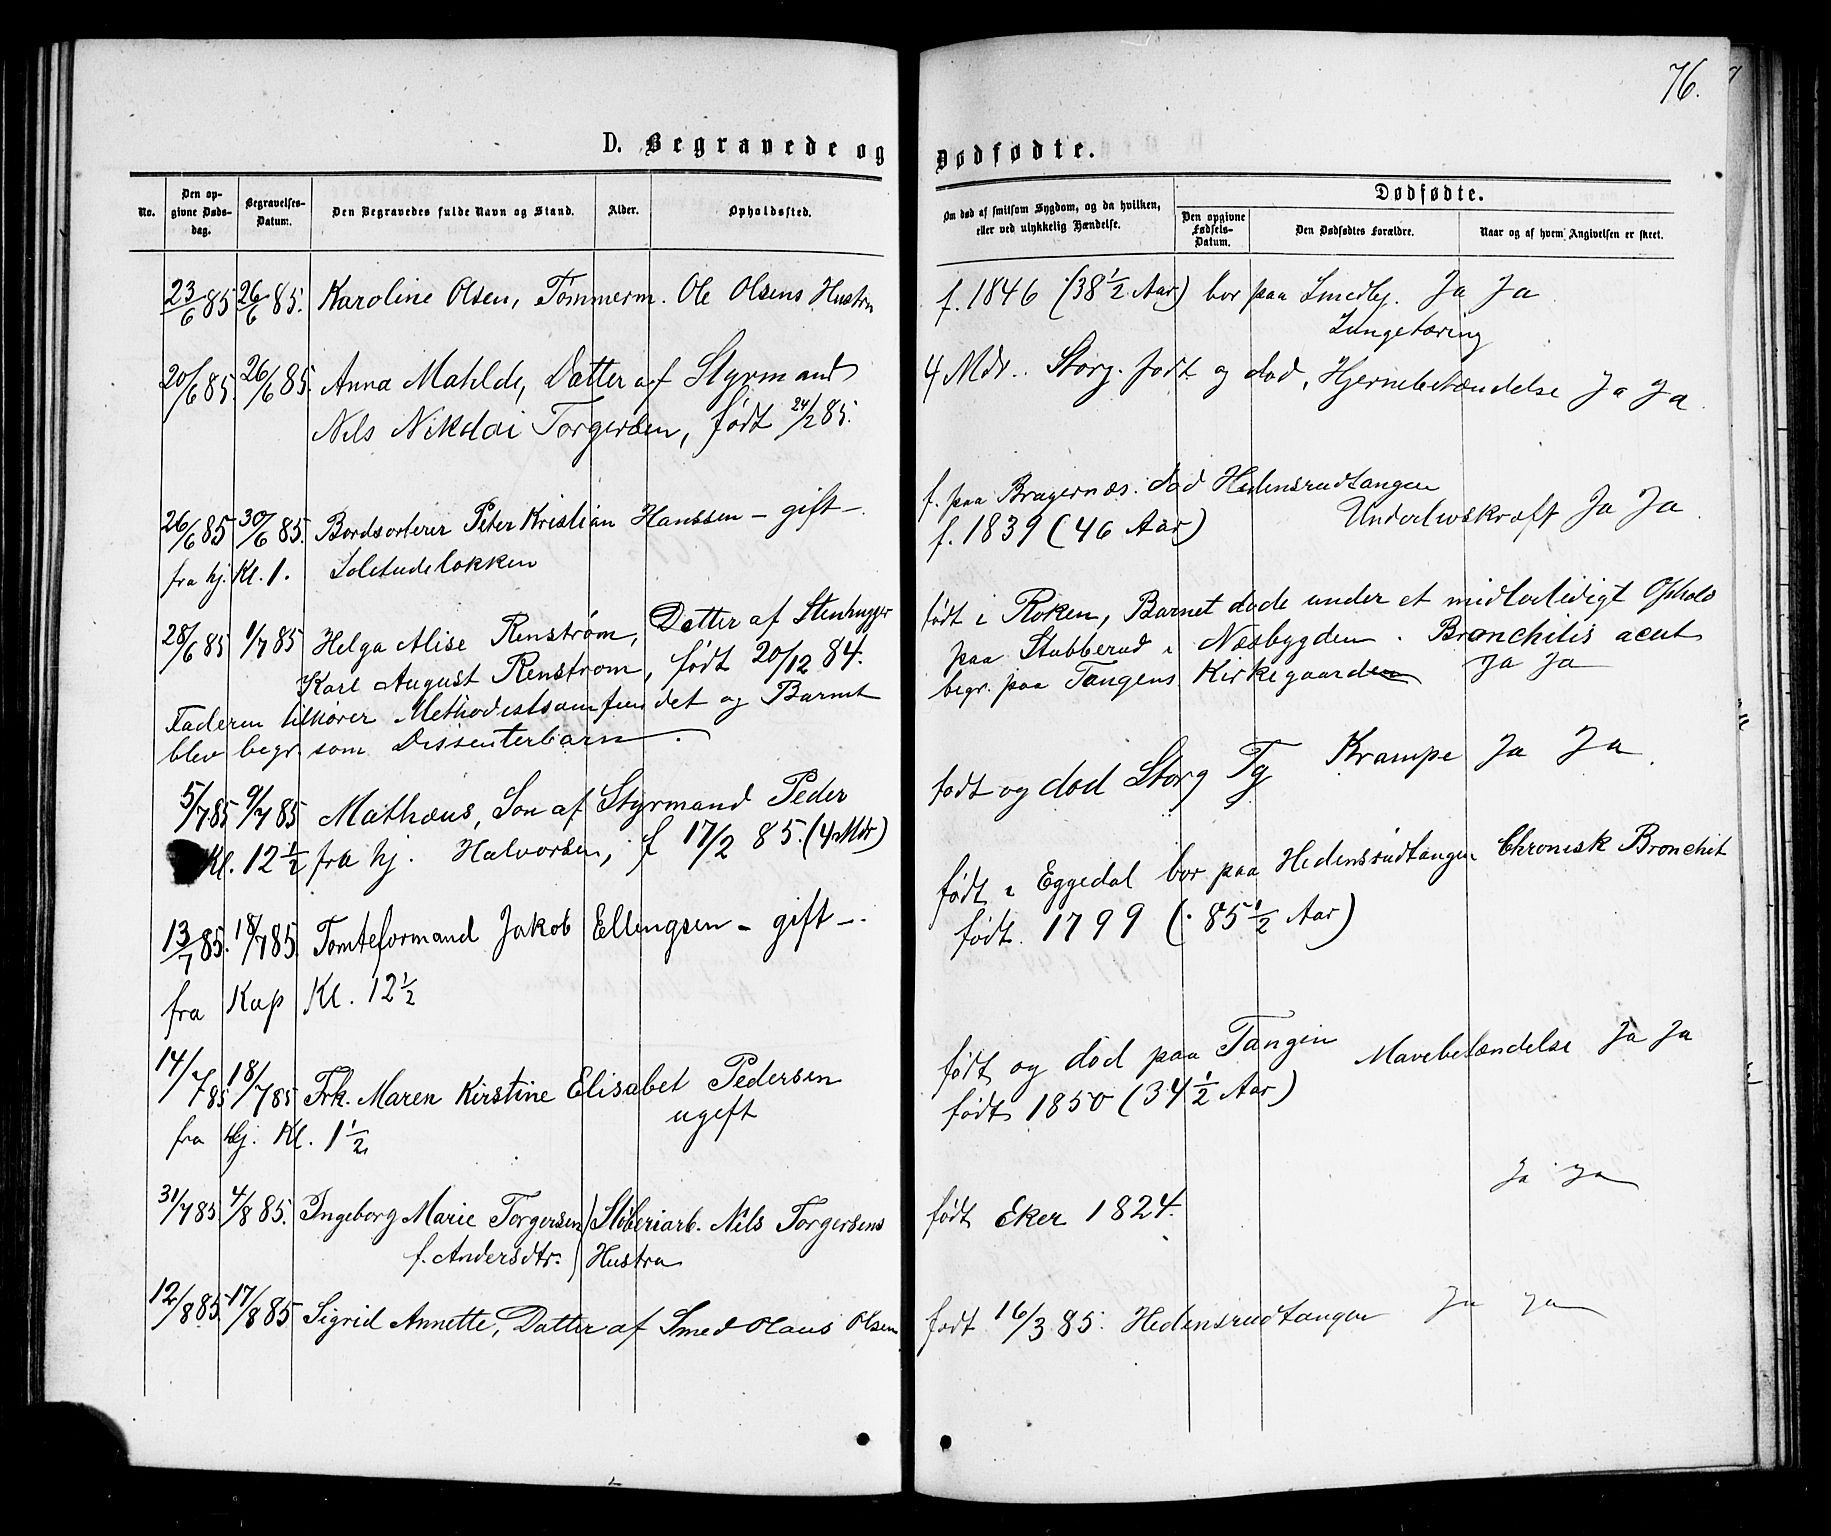 76.
D. Begravede og Dødfødte.
No.
Den opgivne Dødsdag.
Begravelses-Datum.
Den Begravedes fulde Navn og Stand.
Alder.
Opholdssted.
Om død af smitsom Sygdom, og da hvilken, eller ved ulykkelig Hændelse.
Dødfødte.
Den opgivne Fødsels-Datum.
Den Dødfødtes Forældre.
Naar og af hvem Angivelsen er skeet.
23/6 85 26/6 85. Karoline Olsen, Tømmerm. Ole Olsens Hustru
f. 1846 (38 1/2 Aar) bor paa Smedbj. Ja Ja
Lungetæring
20/6 85. 26/6 85. Anna Matilde, Datter af Styrmand
Nils Nikolai Torgersen, født 24/2 85.
4 Mdr. Storg. født og død, Hjernebetændelse Ja Ja
26/6 85 30/6 85. Bordsorterer Peter Kristian Hanssen - gift -.
fra hj. Kl. 1. Soletudeløkken
f. paa Bragernæs. død Hedensrudtangen
f. 1839 (46 Aar) Underlivskræft Ja Ja
28/6 85 1/7 85 Helga Alise Renstrøm, Datter af Stenhugger
Karl August Renstrøm, født 20/12 84.
Faderen tilhører Methodistsamfundet og Barnet
blev begr. som Dissenterbarn.
født i Røken, Barnet døde under et midlertidigt Ophold
paa Stubberud i Næsbygden. Bronchitis acut
begr. paa Tangens Kirkegaard Ja Ja
5/7 85 9/7 85 Mathæus, Søn af Styrmand Peder
Kl. 12 1/2 fra hj. Halvorsen, f 17/2 85. (4 Mdr)
født og død Storg Tg Krampe Ja Ja
13/7 85. 18/7 85. Tomteformand Jakob Ellingsen - gift -.
fra Kap Kl. 12 1/2
født i Eggedal bor paa Hedensrudtangen Chronisk Bronchit
født 1799 (85 1/2 Aar)
14/7 85 18/7 85 Frk. Maren Kirstine Elisabet Pedersen
fra Hj. Kl. 1 1/2 ugift
født og død paa Tangen Mavebetændelse Ja Ja
født 1850 (34 1/2 Aar)
31/7 85 4/8 85. Ingeborg Marie Torgersen) Støberiarb. Nils Torgersens
f. Andersdtr. ) Hustru
født Eker 1824. Ja Ja
12/8 85. 17/8 85 Sigrid Annette, Datter af Smed Olaus Olsen
født 16/3 85. Hedensrudtangen Ja Ja